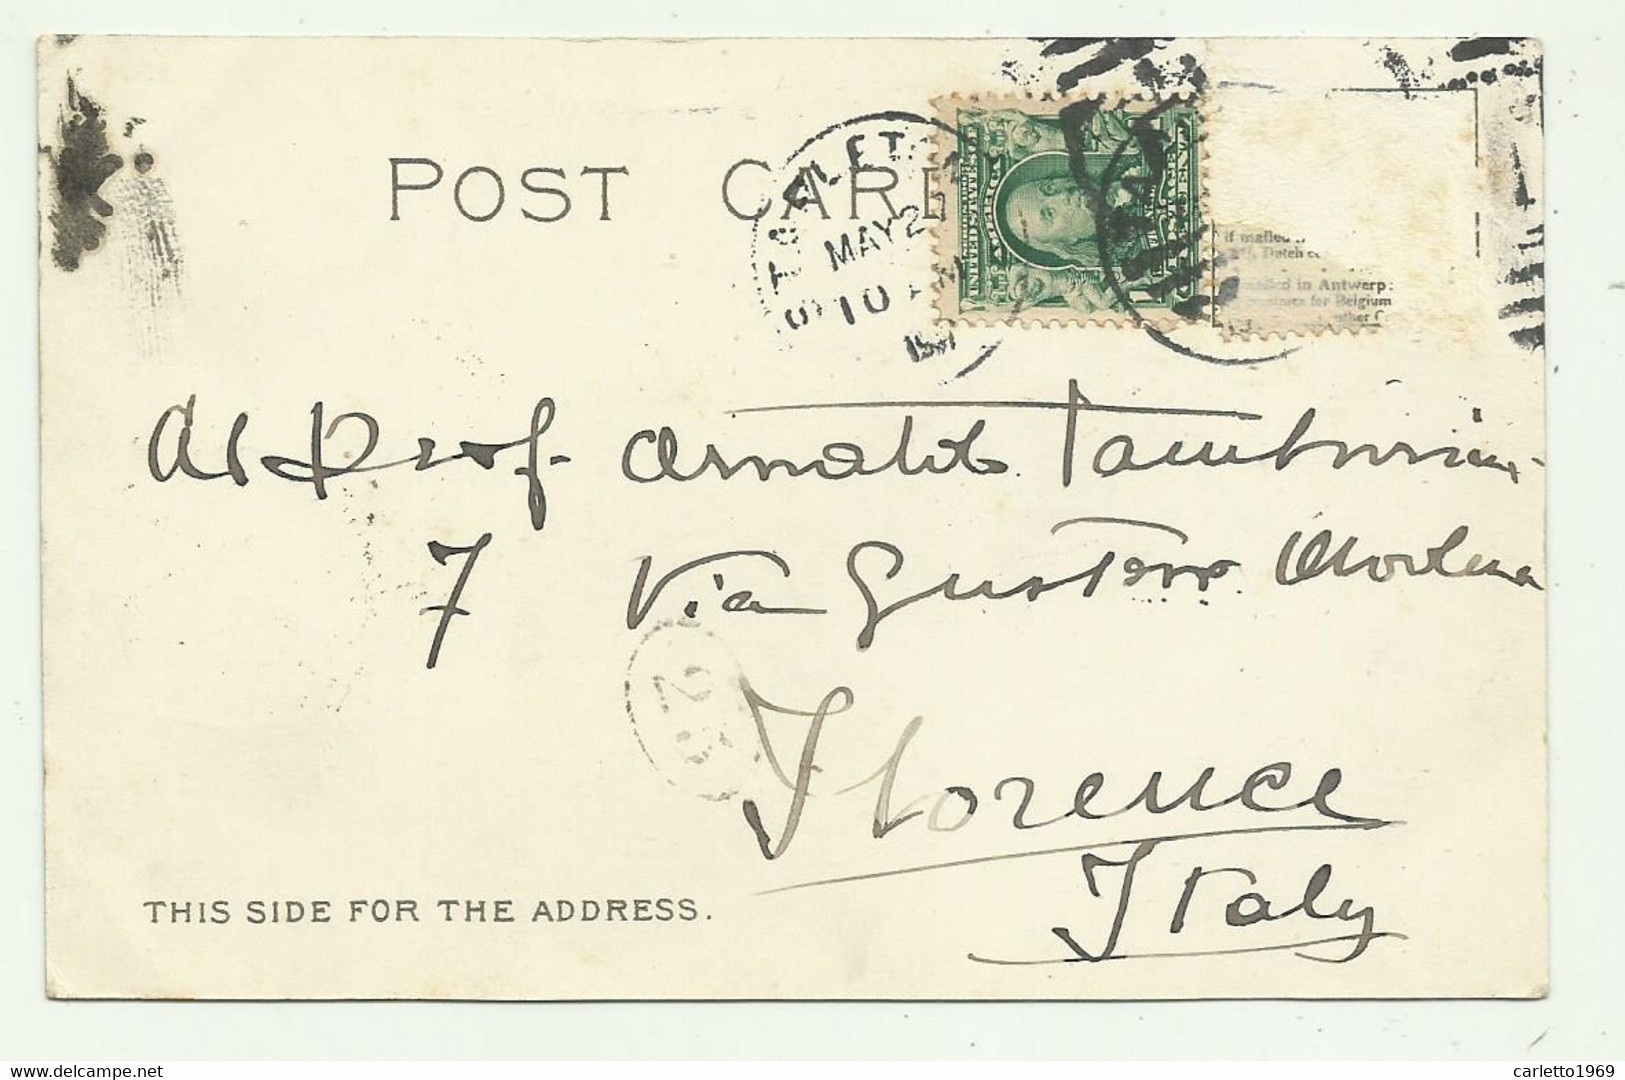 POST CARD
MAY 2
10
if mailed
Dutch
mailed in Antwerp:
for Belgium
Al Prof. Arnaldo Tamburini
7 Via Gustavo Modena
25
Florence
Italy
THIS SIDE FOR THE ADDRESS.
delcampe.net
carletto1969